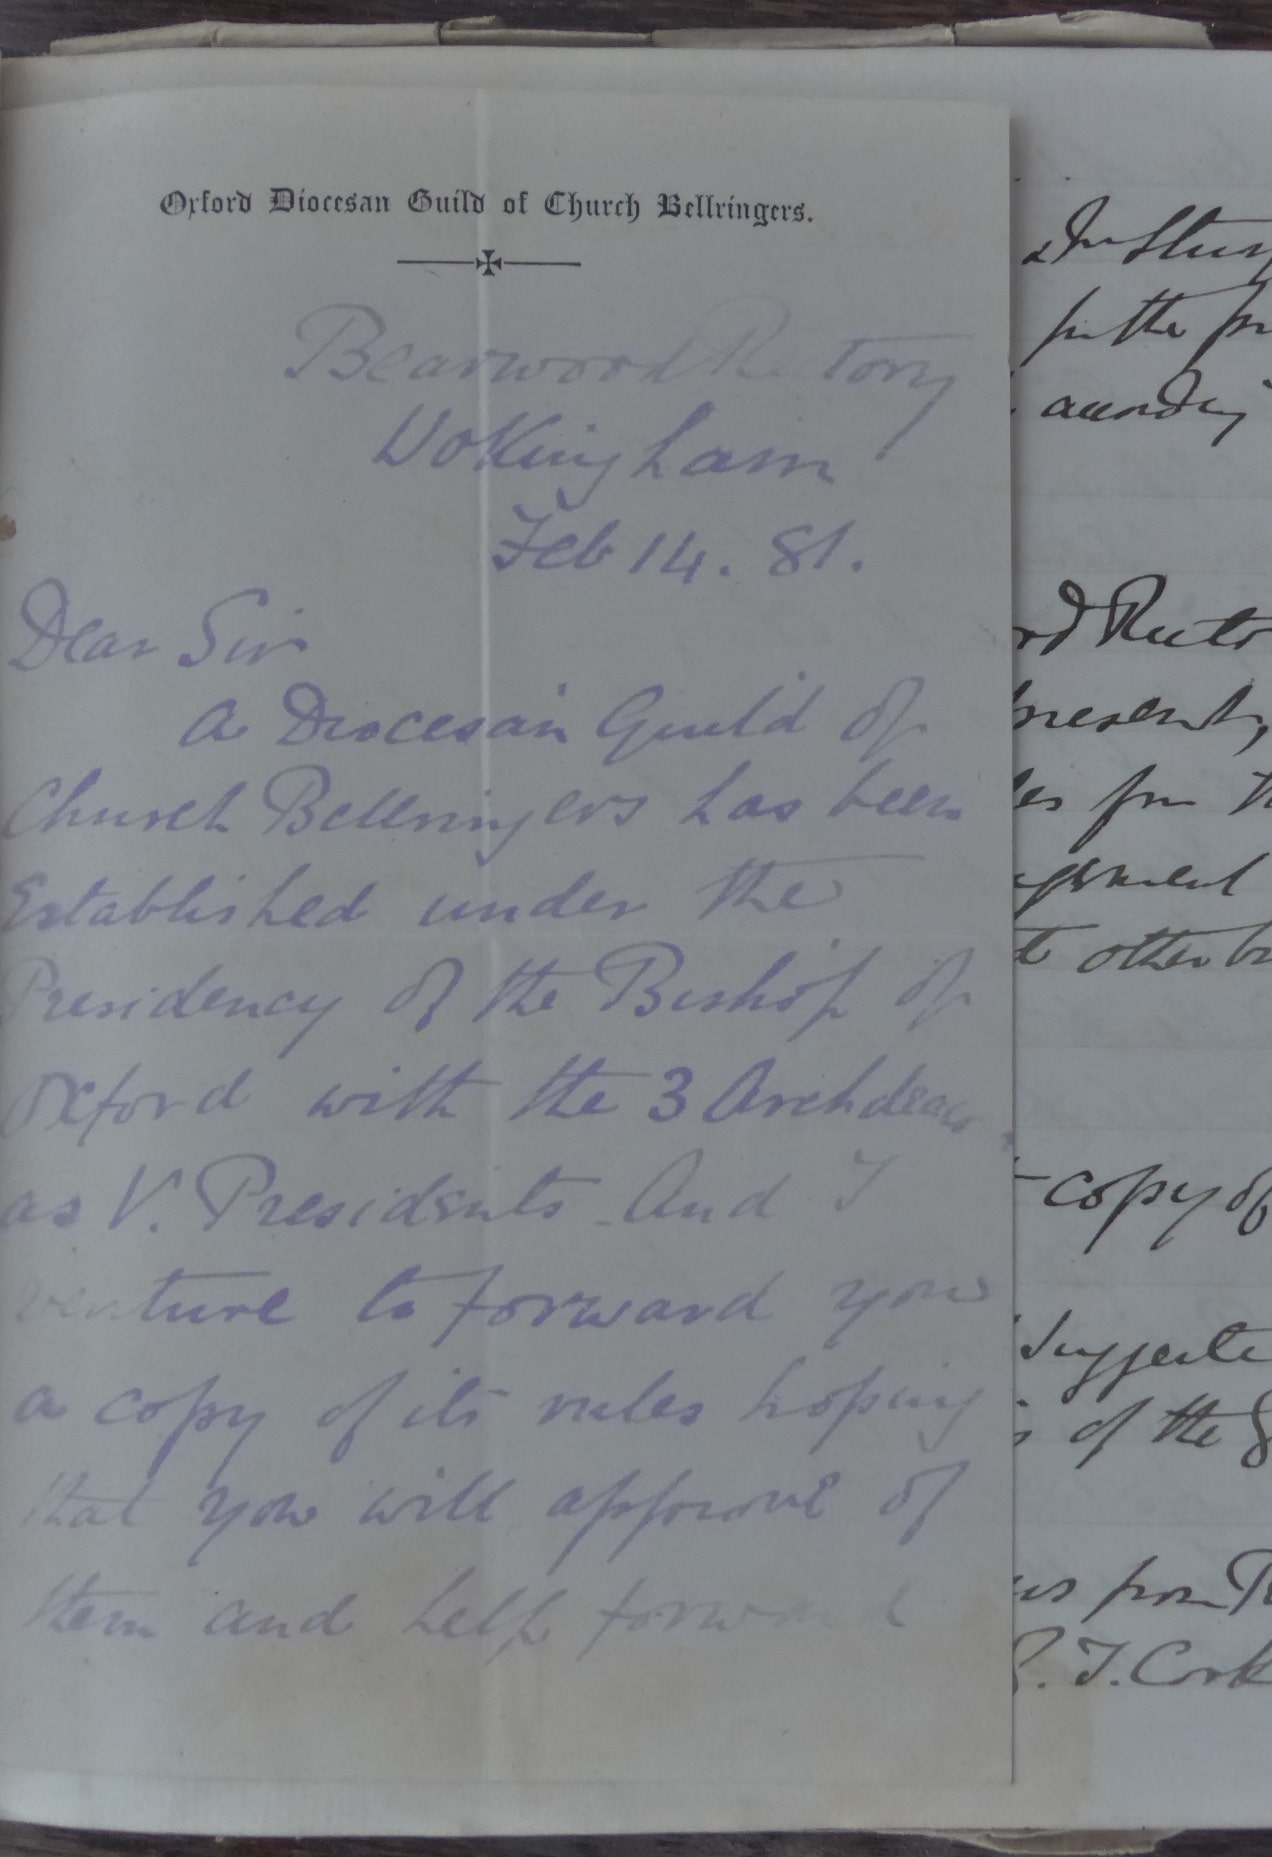 Oxford Diocesan Guild of Church Bellringers.
Bearwood Rectory
Wokingham
Feb 14. 81.
Dear Sir
A Diocesan Guild of
Church Bellringers has been
Established under the
Presidency of the Bishop of
Oxford with the 3 Archdeacons
as V. Presidents - And I
venture to forward you
a copy of its rules hoping
that you will approve of
them and help forward
for the
according
present,
other
copy of
of the
from
J. Cork